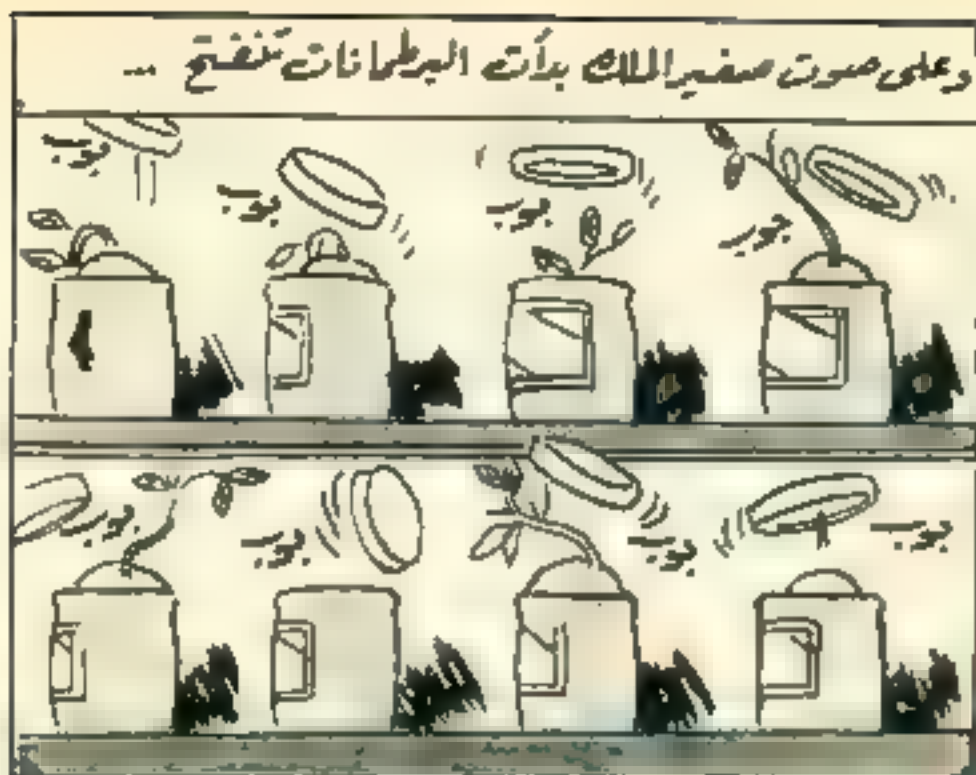 وعلى صوت صفير الملك بدأت البرطمانات تنفتح ...
بوب
بوب
بوب
بوب
بوب
بوب
بوب
بوب